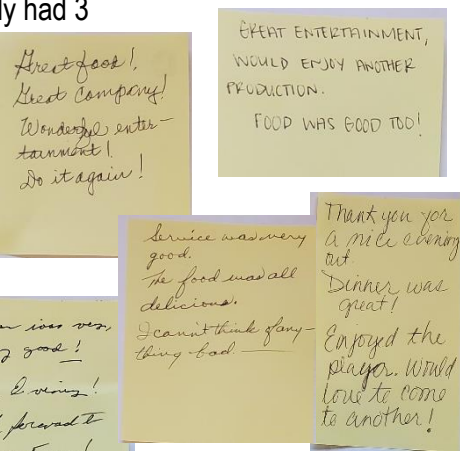 ly had 3
Great food!
Great Company!
Wonderful enter-
tainment!
Do it again!
GREAT ENTERTAINMENT,
WOULD ENJOY ANOTHER
PRODUCTION.
FOOD WAS GOOD TOO!
Service was very
good.
The food was all
delicious.
I cannt think of any-
thing bad.
Thank you for
a nice evening
out.
Dinner was
great!
Enjoyed the
player. Would
love to come
to another!
was very
good!
Evening!
forward to